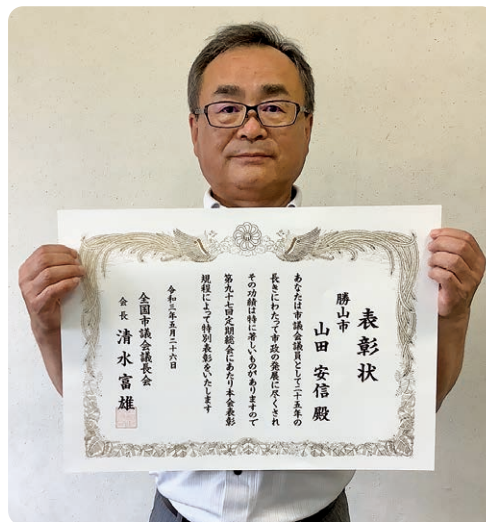 表彰状
勝山市
山田安信殿
あなたは市議会議員として二十五年の
長きにわたって市政の発展に尽くされ
その功績は特に著しいものがありますので
第九十七回定期総会にあたり本会表彰
規程によって特別表彰をいたします
令和三年五月二十六日
全国市議会議長会
会長 清水富雄